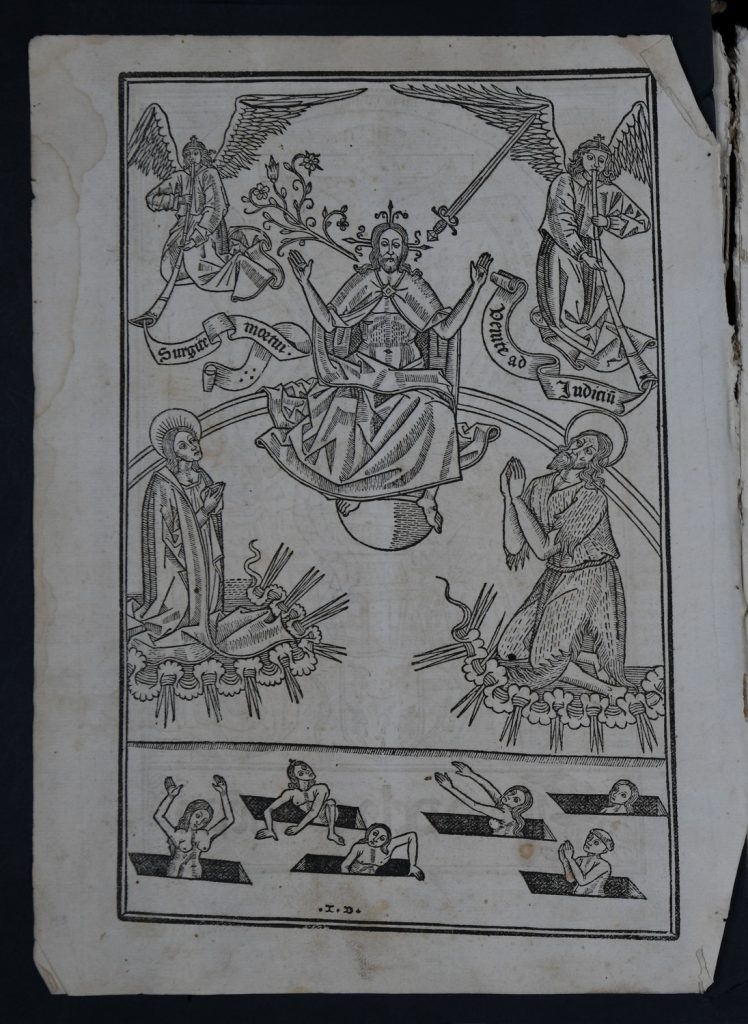 Surgite mortui.
Venite ad
Judiciū
.I.D.